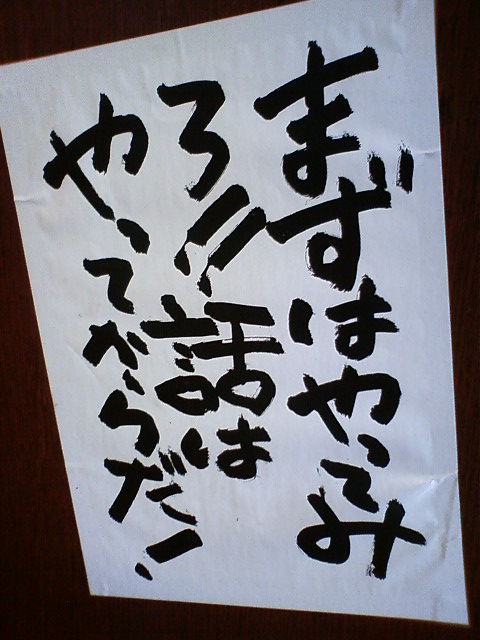 まずはやってみ
ろ!!話は
やってからだ!